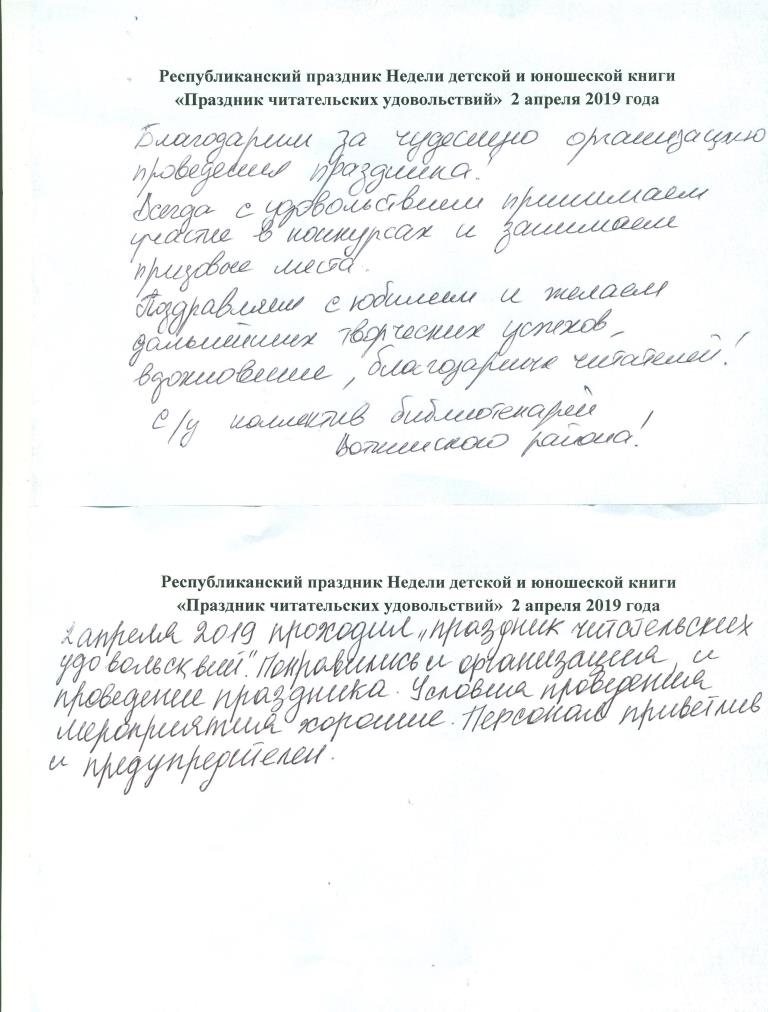 Республиканский праздник Недели детской и юношеской книги
«Праздник читательских удовольствий» 2 апреля 2019 года
Благодарим за чудесную организацию
проведения праздника!
Всегда с удовольствием принимаем
участие в конкурсах и занимаем
призовые места.
Поздравляем с юбилеем и желаем
дальнейших творческих успехов,
вдохновение, благодарных читателей!
С/у коллектив библиотекарей
Воткинского района!
Республиканский праздник Недели детской и юношеской книги
«Праздник читательских удовольствий» 2 апреля 2019 года
2 апреля 2019 проходил „праздник читательских
удовольсквий". Понравились и организация, и
проведение праздника. Условия проведения
мероприятия хорошие. Персонал приветлив
и предупредителен.